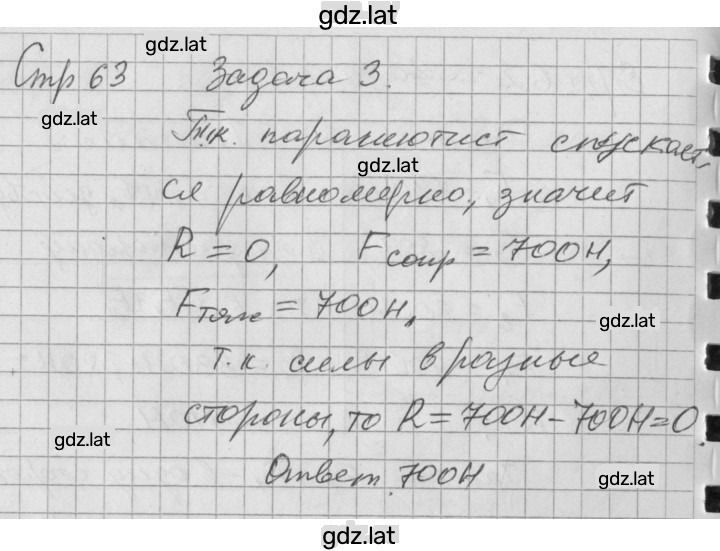 gdz.lat
gdz.lat
Стр 63 Задача 3.
gdz.lat
Т.к. парашютист спускает
gdz.lat
ся равномерно, значит
R = 0, Fсопр = 700Н,
Fтяж = 700Н,
gdz.lat
т.к. силы в разные
стороны, то R = 700Н - 700Н = 0
gdz.lat
Ответ. 700Н
gdz.lat
gdz.lat